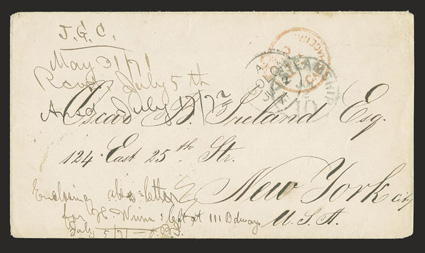 J.G.C.
May 31/71
Recd July 5th
Ansd July 17/77
STEAMSHIP
10
Oscar B. Ireland Esq.
124 East 25th Str.
New York city
U.S.A.
Enclosing also letter
for at 111 Bdway
July 5/71